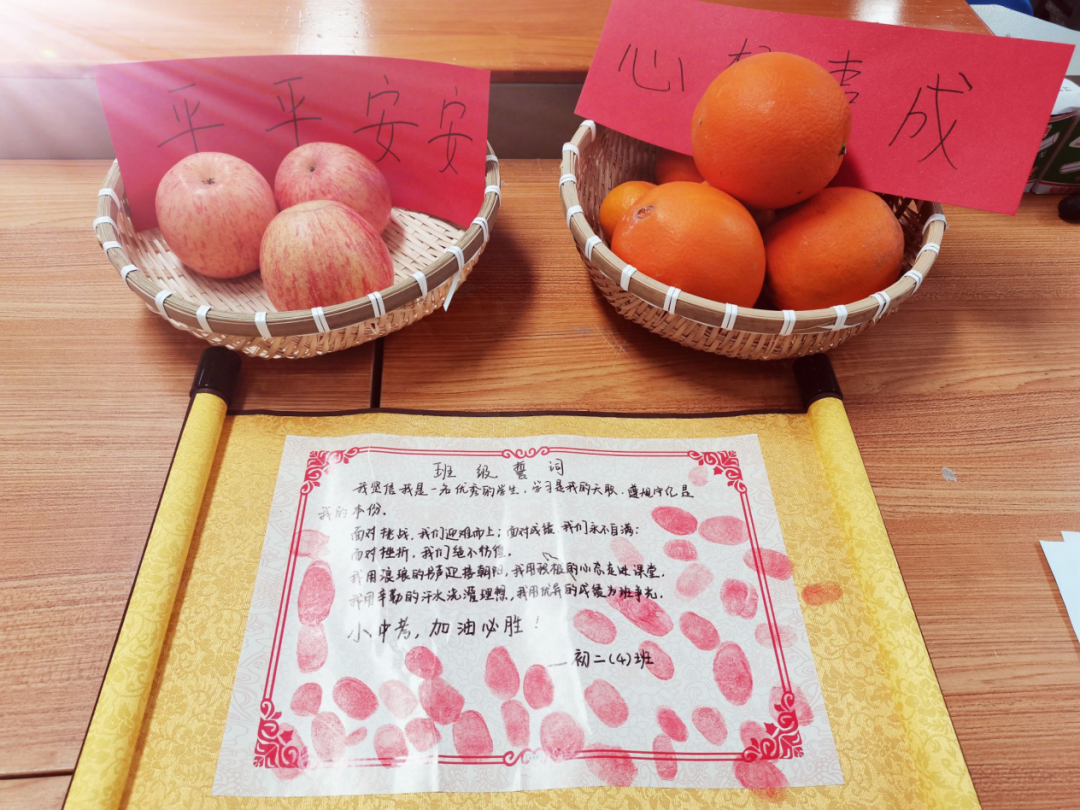 平平安安
心想事成
班级誓词
我坚信我是一名优秀的学生，学习是我的天职，遵规守纪是
我的本份。
面对挑战，我们迎难而上；面对成绩，我们永不自满；
面对挫折，我们绝不彷徨。
我用浪琅的书声迎接朝阳，我用积极的心态走进课堂，
我用辛勤的汗水浇灌理想，我用优异的成绩为班争光。
小中考，加油必胜！
—初二(4)班